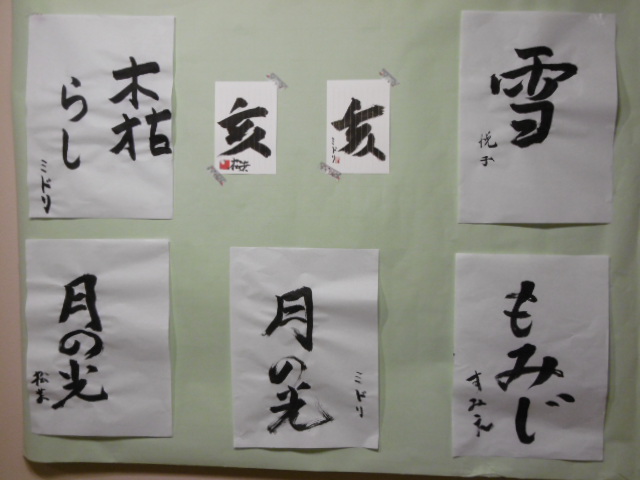 木枯
らし
ミドリ
亥
亥
ミドリ
雪
悦子
月の光
松本
月の光
ミドリ
もみじ
すみ礼